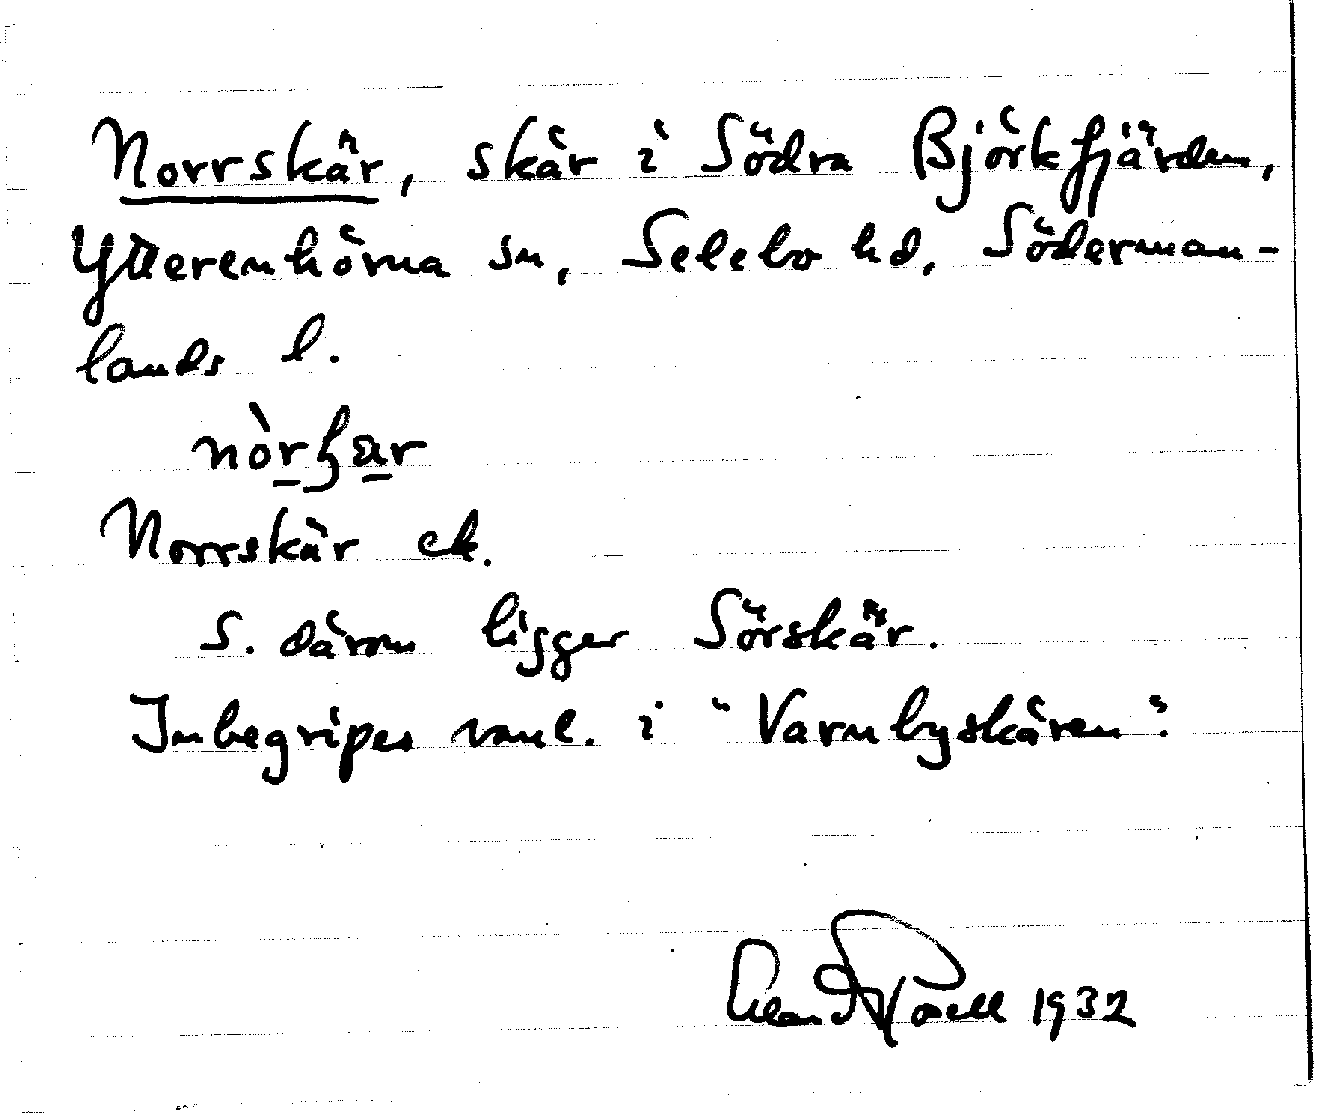 Norrskär, skär i Södra Björkfjärden,
Ytterenhörna sn, Selebo hd, Söderman-
lands l.
Norrskär ek.
S. därom ligger Sörskär.
Inbegripes vanl. i "Varnbyskären".
1932